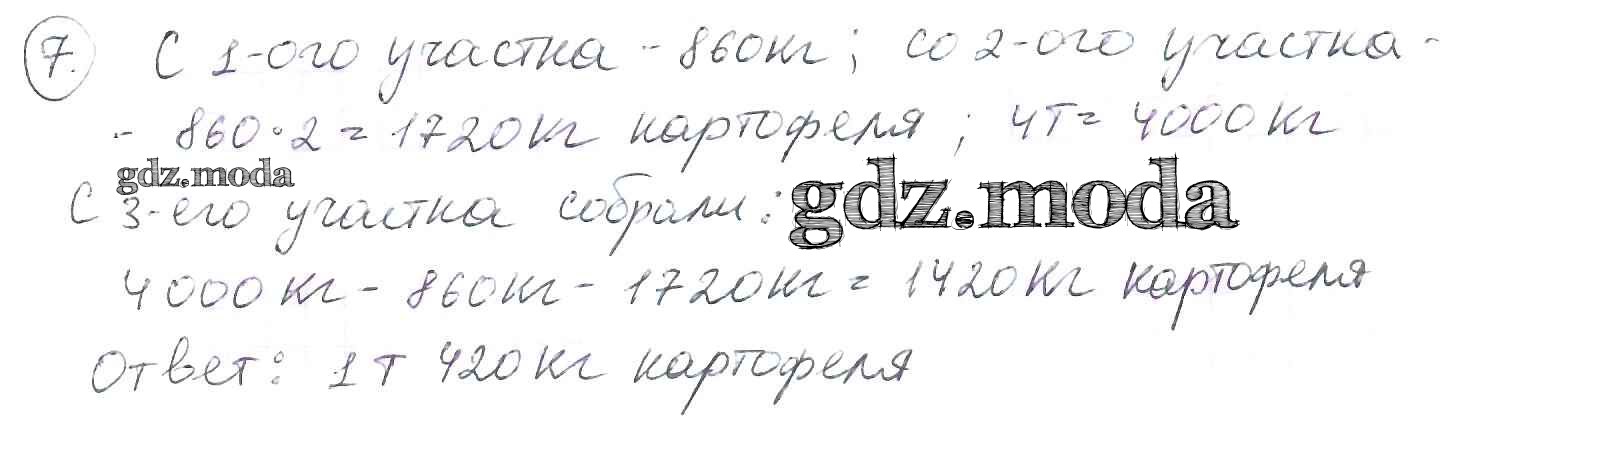 7. С 1-ого участка - 860кг; со 2-ого участка -
- 860·2 = 1720кг картофеля; 4т = 4000кг
gdz.moda
С 3-его участка собрали:
gdz.moda
4000кг - 860кг - 1720кг = 1420кг картофеля
Ответ: 1т 420кг картофеля